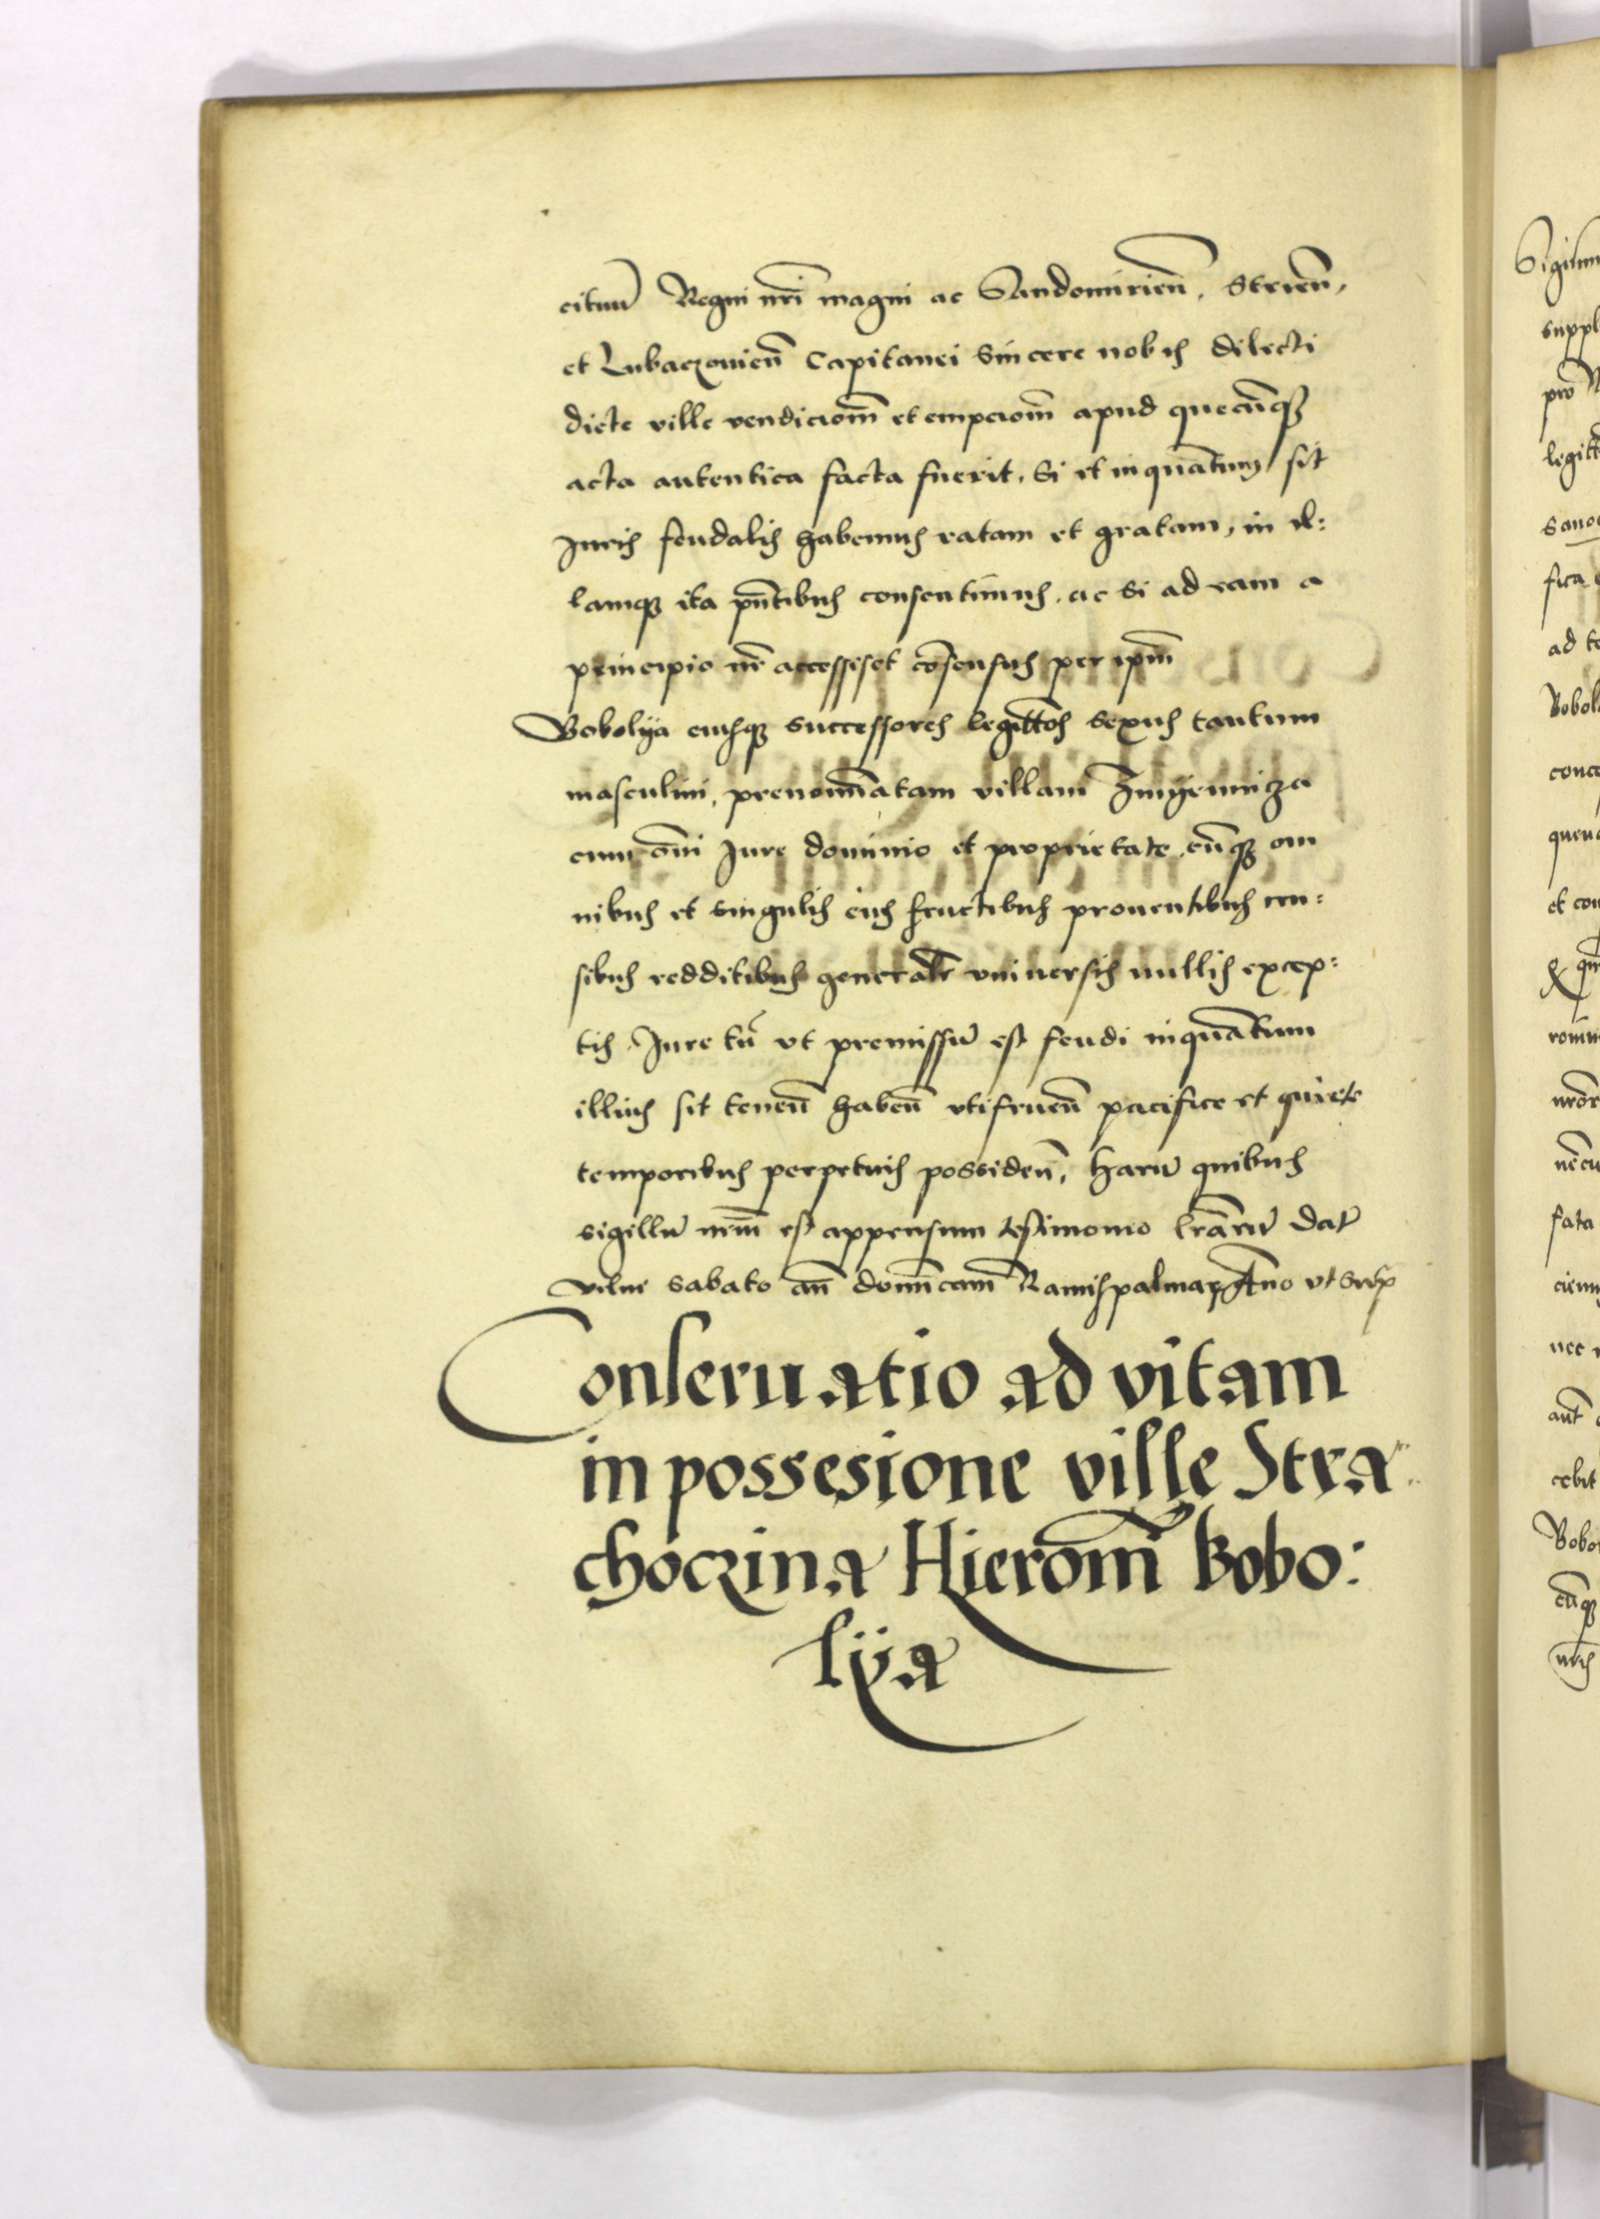 cituu͂ Regni nr̃i magni ac Sandomirien̄. Strien̄.
et Lubaczouien̄ Capitanei Sincere nobis dilecti
dicte ville vendiciom̄ et empciom̄ apud quecu͂qꝫ
acta autentica facta fuerit. Si et inquãtum sit
Juris feudalis habemus ratam et gratam, in il:
lamqꝫ ita pñtibus consentimus. ac si ad eam a
principio nr̃ accessisset co͂sensus per ipm̄
Bobolija eiusqꝫ successores legitt͂os sexus tantum
masculini, prenomi͂atam villam Zmijeunicza
cum om͂i Jure dominio et proprietate. cu͂qꝫ om
nibus et singulis eius fructibus prouentibus cen:
sibus redditibus generalr̄ vniuersis nullis excep:
tis Jure tn̄ vt premissu͂ est feudi inquãtum
illius sit tenen̄ haben̄ vtifruen̄ pacifice et quiete
temporibus perpetuis possiden̄. Haru͂ quibus
sigillu͂ nrm̄ est appensum testimonio lr̃aru͂ Dat̃
Vilne Sabato an̄ domi͂cam Ramispalmaꝝ Anno vt sup̃
Conseruatio ad vitam
in possesione ville Stra
choczina Hierom͂ Bobo:
lya
Sigism
suppl
pro
legitt
Sano
fica
ad te
Bobol
conce
queu
et con
fata
nec
aut̄
cebit
Bobo
cu͂qꝫ